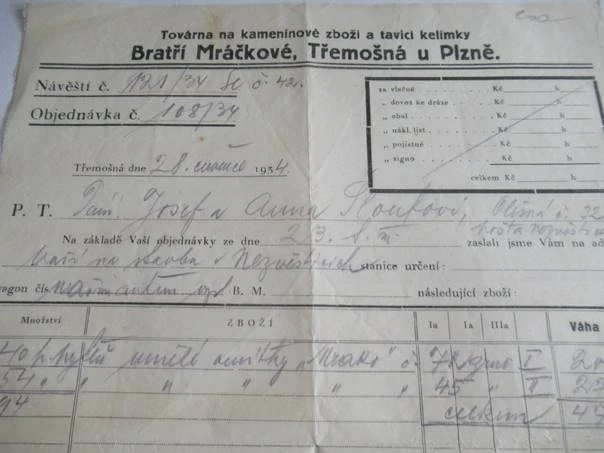 Továrna na kameninové zboží a tavicí kelímky
Bratří Mráčkové, Třemošná u Plzně.
Návěští č. 121/34
Objednávka č. 108/34
za vlečné Kč h
„ dovoz ke dráze Kč h
„ obal Kč h
„ nákl. list Kč h
„ pojistné Kč h
„ signo Kč h
celkem Kč h
Třemošná dne 28. července 1934.
P. T. Paní Josef a Anna
Na základě Vaší objednávky ze dne 23. zaslali jsme Vám na ad
stavbu v Nezvěsticích stanice určení:
agon čís. B. M. následující zboží:
Množství ZBOŽÍ Ia Ia IIIa Váha
40 pytlů umělé omítky „Mrako" č. 72 I 20
54 „ „ „ „ „ 45 „ II 27
94 celkem 47